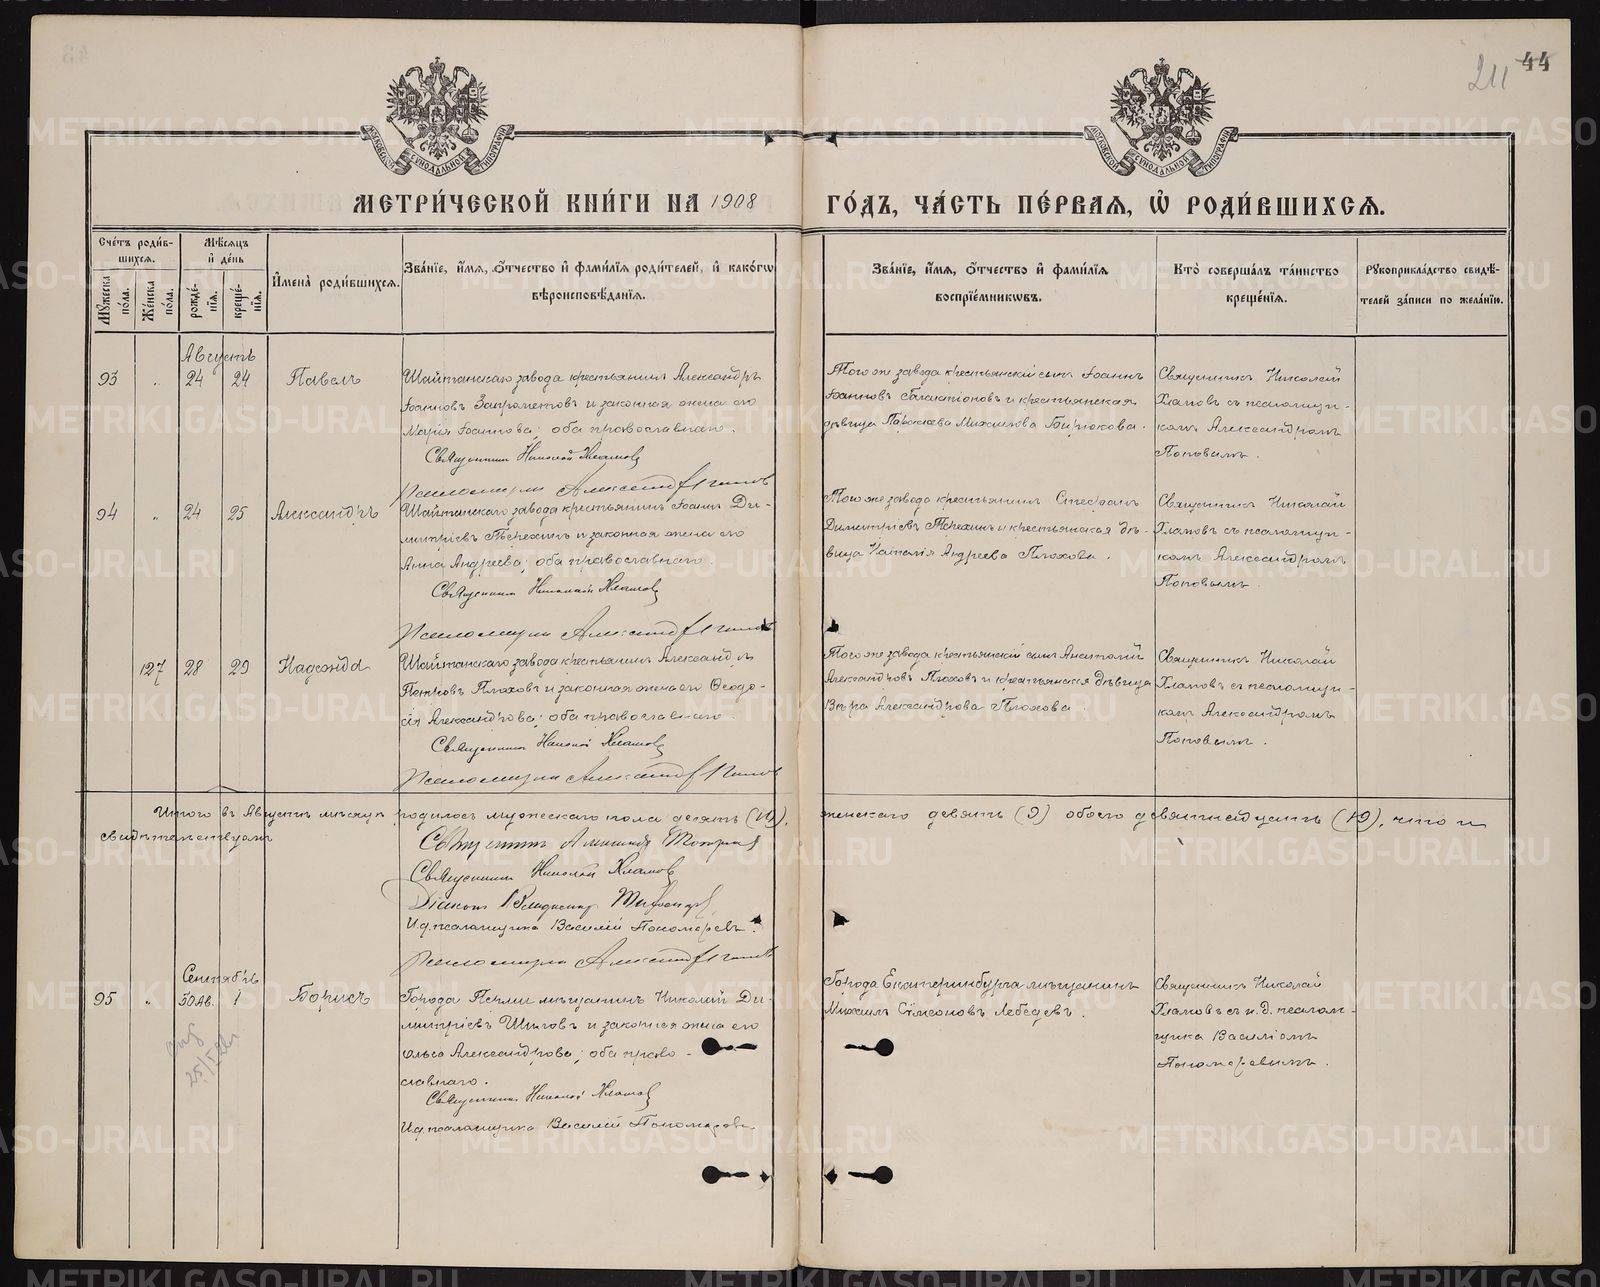 211 44
МЕТРИ́ЧЕСКОЙ КНИ́ГИ НА 1908 ГО́ДЪ, ЧА́СТЬ ПЕ́РВАѦ, Ѡ РОДИ́ВШИХСѦ.
Сче́тъ роди́вшихсѧ.
Мꙋжеска пола.
Же́нска пола.
Мѣ́сѧцъ и де́нь
рожде́нїѧ.
креще́нїѧ.
И҆мена̀ роди́вшихсѧ.
Зва́нїе, и҆́мѧ, ѻ҆́тчество и҆ фами́лїѧ роди́телей, и҆ како́гѡ
вѣроисповѣ́данїѧ.
Зва́нїе, и҆́мѧ, ѻ҆́тчество и҆ фами́лїѧ
воспрїе́мникѡвъ.
Кто̀ соверша́лъ та́инство
креще́нїѧ.
Рꙋкоприкла́дство свидѣ́-
телей за́писи по жела́нїю.
Августъ
93 „ 24 24 Павелъ
Шайтанскаго завода крестьянинъ Александръ
Іоанновъ Запрометовъ и законная жена его
Марія Іоаннова; оба православнаго.
Священникъ Николай Хламовъ
Псаломщикъ Александръ Поповъ
Того же завода крестьянскій сынъ Іоаннъ
Іоанновъ Галактіоновъ и крестьянская
дѣвица Параскева Михаилова Бирюкова.
Священникъ Николай
Хламовъ съ псаломщи-
комъ Александромъ
Поповымъ.
94 „ 24 25 Александръ
Шайтанскаго завода крестьянинъ Іоаннъ Ди-
митріевъ Терехинъ и законная жена его
Анна Андреева; оба православнаго.
Священникъ Николай Хламовъ
Псаломщикъ Александръ Поповъ
Того же завода крестьянинъ Стефанъ
Димитріевъ Терехинъ и крестьянская дѣ-
вица Наталія Андреева Плохова.
Священникъ Николай
Хламовъ съ псаломщи-
комъ Александромъ
Поповымъ.
127 28 29 Надежда
Шайтанскаго завода крестьянинъ Александръ
Петровъ Плоховъ и законная жена его Ѳеодо-
сія Александрова; оба православнаго.
Священникъ Николай Хламовъ
Псаломщикъ Александръ Поповъ
Того же завода крестьянскій сынъ Анатолій
Александровъ Плоховъ и крестьянская дѣвица
Вѣра Александрова Плохова.
Священникъ Николай
Хламовъ съ псаломщи-
комъ Александромъ
Поповымъ.
Итого въ Августѣ мѣсяцѣ родилось мужескаго пола десять (10), женскаго девять (9) обоего девятнадцать (19), что и
свидѣтельствуемъ
Священникъ
Священникъ Николай Хламовъ
Діаконъ Владиміръ
И.д. псаломщика Василій Пономаревъ.
Псаломщикъ Александръ Поповъ
Сентябрь
95 „ 30 Ав. 1 Борисъ
Города Перми мѣщанинъ Николай Ди-
митріевъ Шиловъ и законная жена его
Ольга Александрова; оба право-
славнаго.
Священникъ Николай Хламовъ
И.д. псаломщика Василій Пономаревъ
Города Екатеринбурга мѣщанинъ
Михаилъ Сѵмеоновъ Лебедевъ.
Священникъ Николай
Хламовъ съ и.д. псалом-
щика Василіемъ
Пономаревымъ.